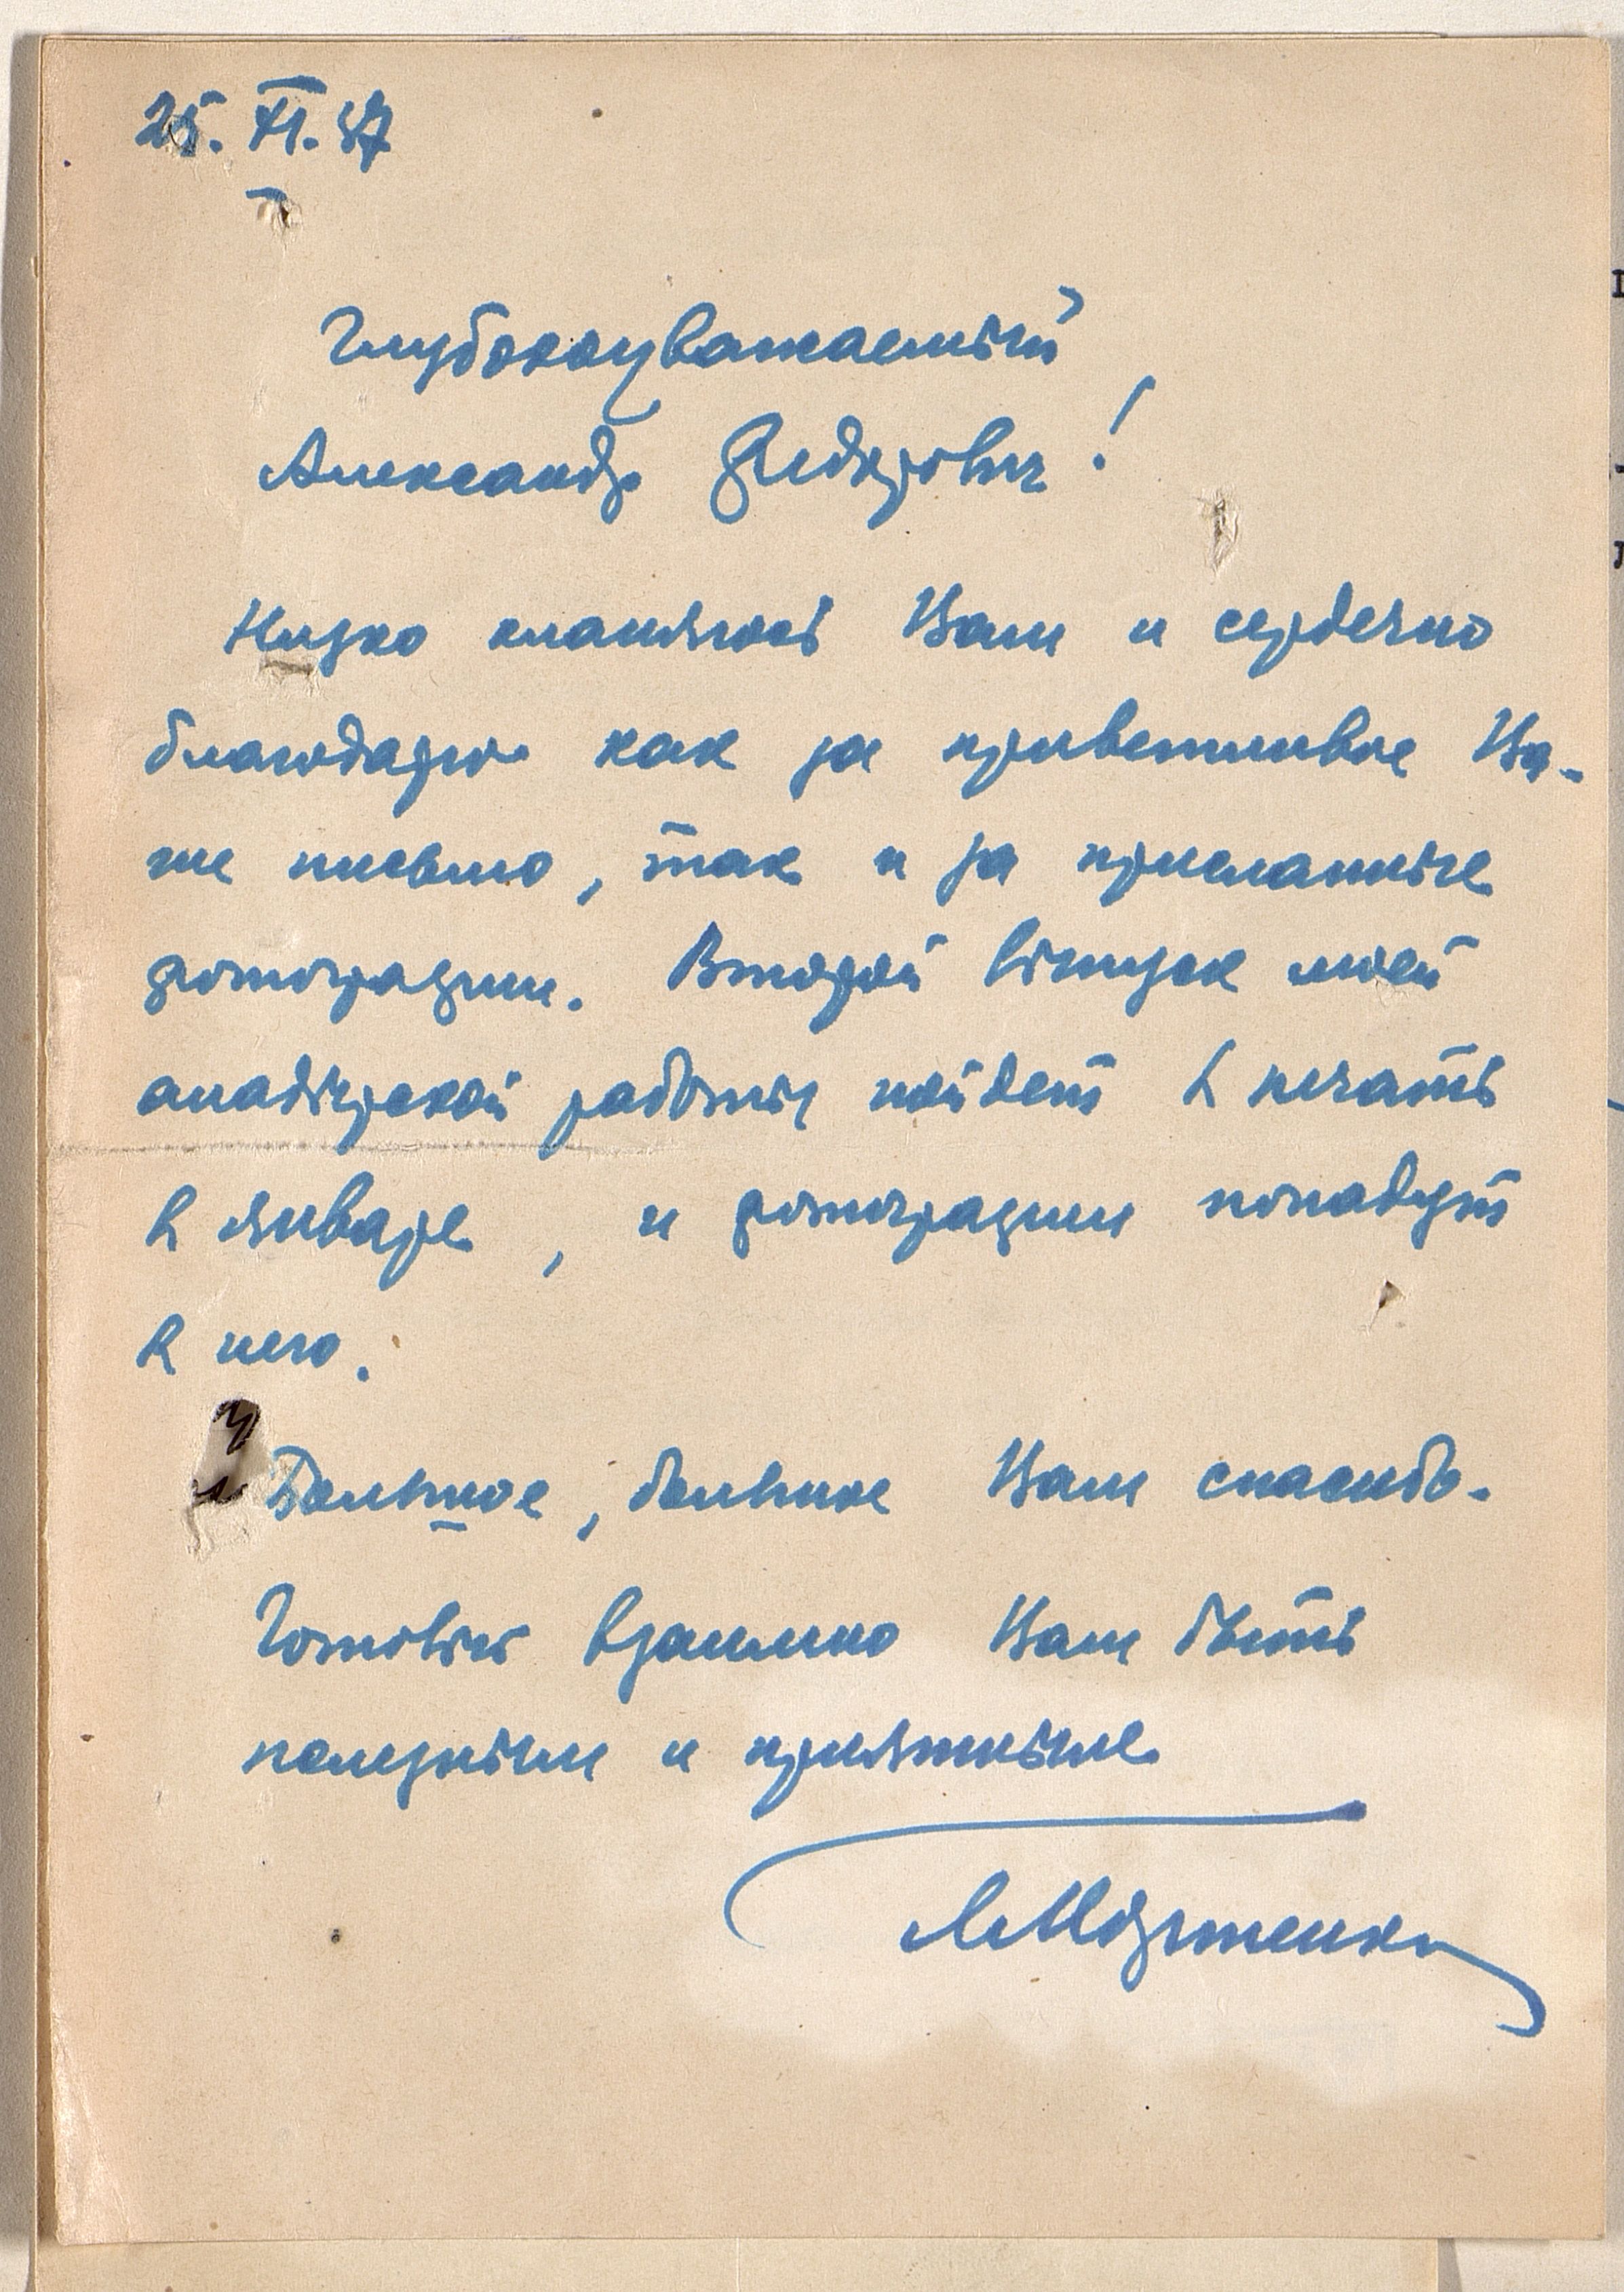 25. XI. 37
Глубокоуважаемый
Александр Федорович!
Низко кланяюсь Вам и сердечно
благодарю как за приветливое Ва-
ше письмо, так и за присланные
фотографии. Второй выпуск моей
анадырской работы пойдет в печать
в январе, и фотографии попадут
в него.
Большое, большое Вам спасибо.
Готовый взаимно Вам быть
полезным и приятным
Л. Портенко